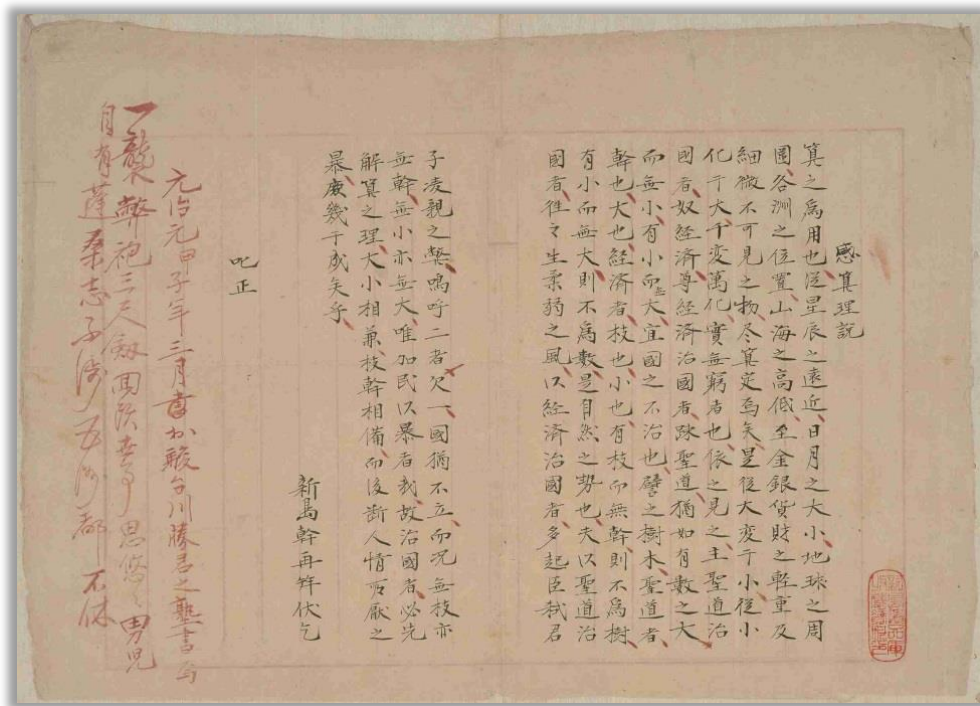 感算理説
算之爲用也從星辰之遠近日月之大小地球之周
圍各洲之位置山海之高低至金銀貨財之軽重及
細微不可見之物尽算定焉矣是從大変于小從小
化于大千変萬化實無窮者也依之見之主聖道治
國者奴経済専経済治國者踈聖道猶如有数之大
而無小有小而無大宜國之不治也譬之樹木聖道者
幹也大也経済者枝也小也有枝而無幹則不爲樹
有小而無大則不爲数是自然之勢也夫以聖道治
國者往々生柔弱之風以経済治國者多起臣弑君
子凌親之弊嗚呼二者欠一國猶不立而况無枝亦
無幹無小亦無大唯加民以暴者哉故治國者必先
解算之理大小相兼枝幹相備而後断人情所厭之
暴庶幾于成矣乎
新島幹再拜伏乞
叱正
元治元甲子年三月書於駿台川勝君之塾書
一襲弊袍三尺劔回頭世事思悠々男児
自有蓬桑志不渉五洲都不休